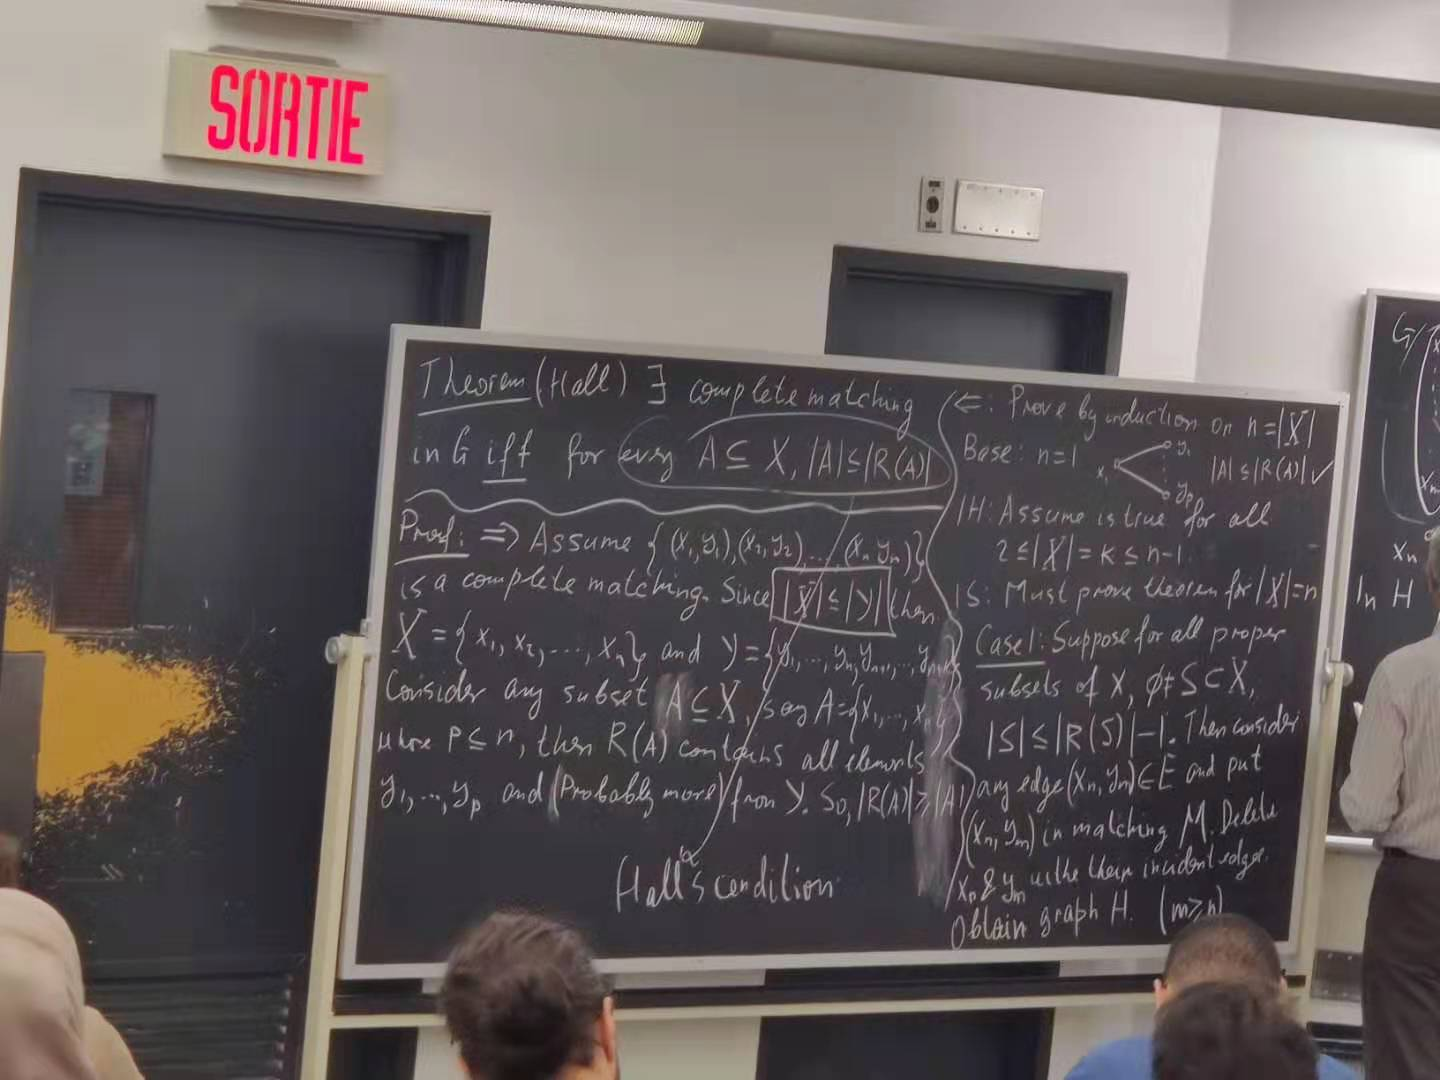 SORTIE
Theorem (Hall) ∃ complete matching
in G iff for every A ⊆ X, |A| ≤ |R(A)|
Proof: ⇒ Assume {(x₁,y₁),(x₂,y₂),...,(xₙ,yₙ)}
is a complete matching. Since |X| ≤ |Y| then
X = {x₁, x₂, ..., xₙ} and Y = {y₁,...,yₙ,yₙ₊₁,...,
Consider any subset A ⊆ X, say A = {x₁,...,
where p ≤ n, then R(A) contains all elements
y₁,...,yₚ and (Probably more) from Y. So, |R(A)| ≥ |A|
Hall's condition
⇐: Prove by induction on n = |X|
Base: n=1 x₁ y₁ yₚ |A| ≤ |R(A)| ✓
IH: Assume is true for all
2 ≤ |X| = k ≤ n-1.
IS: Must prove theorem for |X| = n
Case 1: Suppose for all proper
subsets of X, ∅ ≠ S ⊂ X,
|S| ≤ |R(S)| - 1. Then consider
any edge (xₙ, yₘ) ∈ E and put
(xₙ, yₘ) in matching M. Delete
xₙ & yₘ incident edges.
Obtain graph H. (m ≥ n)
G
xₙ
In H